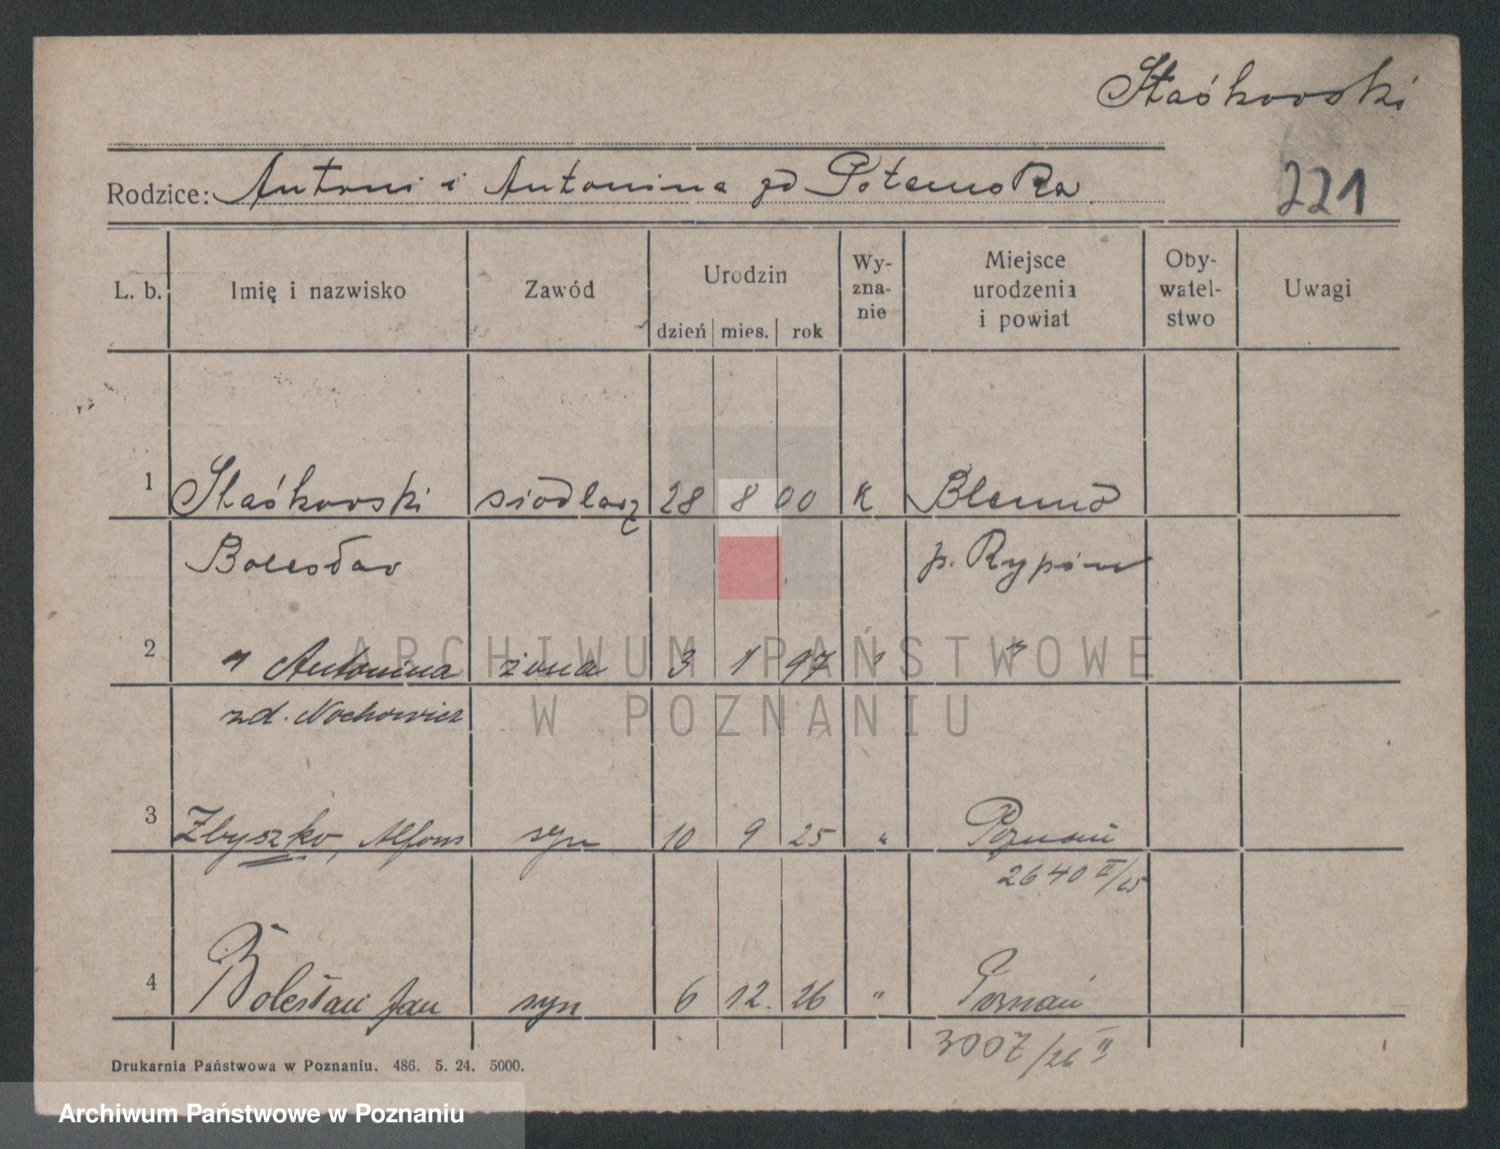 Staśkowski
221
Rodzice: Antoni i Antonina zd Potemska.
L. b. Imię i nazwisko Zawód Urodzin dzień mies. rok Wy-zna-nie Miejsce urodzenia i powiat Oby-watel-stwo Uwagi
1 Staśkowski siodlarz 28 8 00 K Blenno
Bolesław p. Rypin
2 " Antonina żona 3 1 97 " "
zd. Nochowicz
3 Zbyszko, Alfons syn 10 9 25 " Poznań
2640 II/25
4 Bolesław Jan syn 6 12. 26 " Poznań
3007/26 II
Drukarnia Państwowa w Poznaniu. 486. 5. 24. 5000.
ARCHIWUM PAŃSTWOWE
W POZNANIU
Archiwum Państwowe w Poznaniu